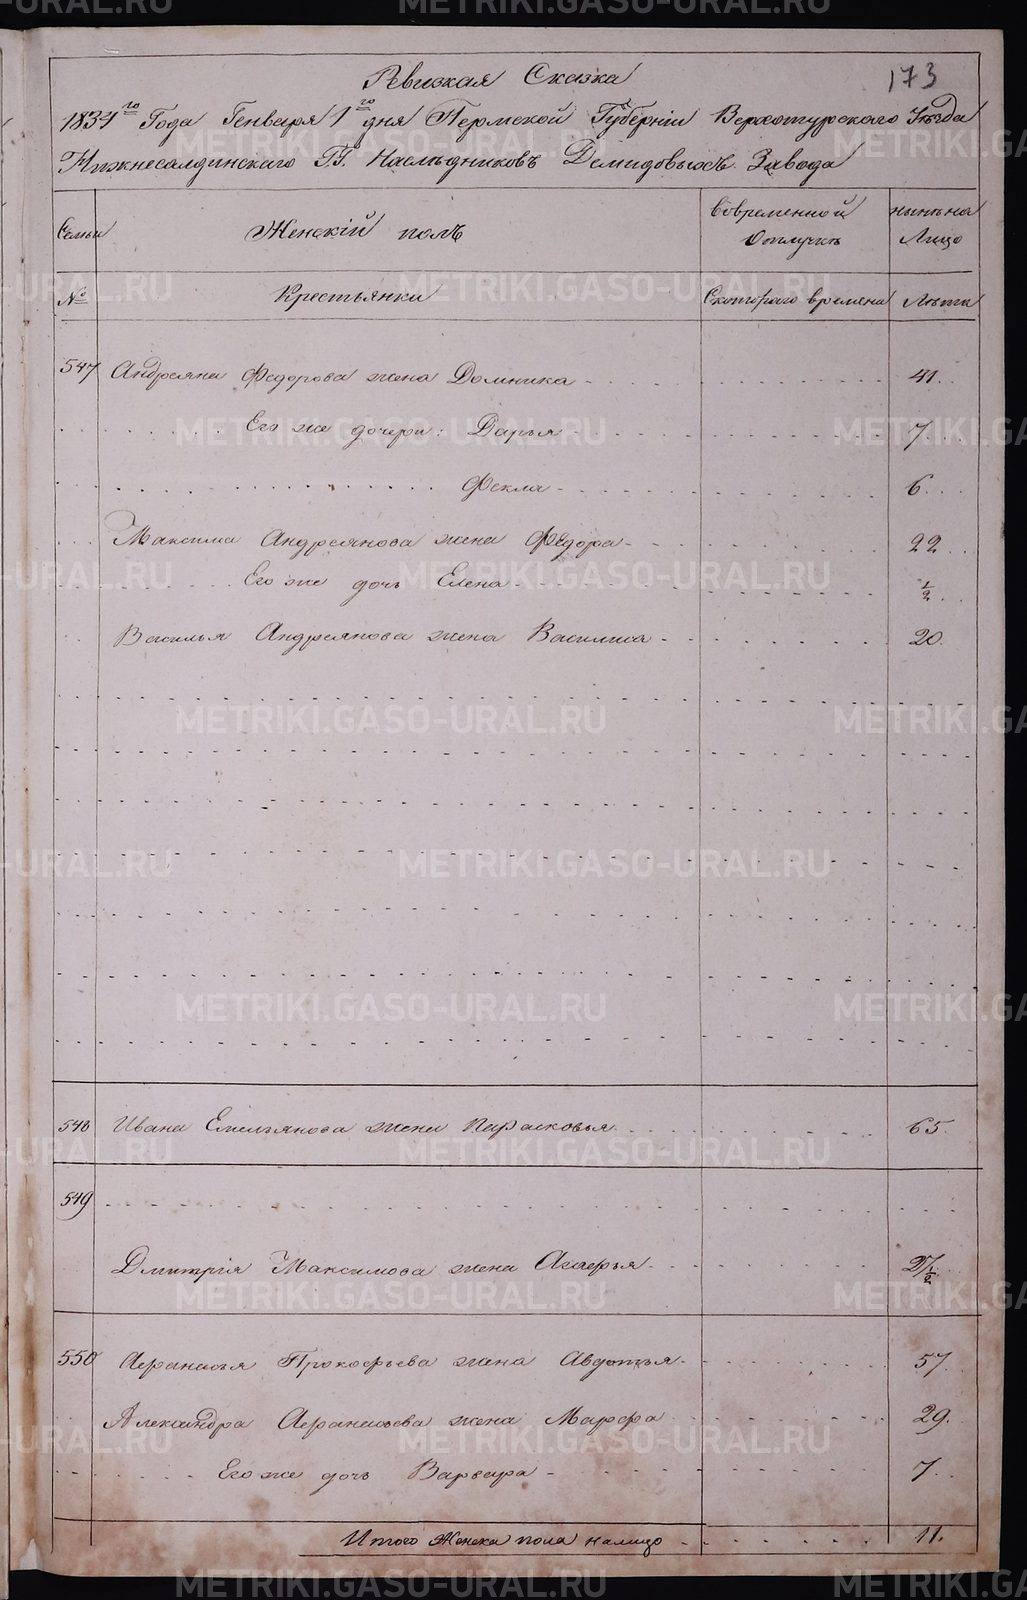 173
Ревизкая Сказка
1834го Года Генваря 1го дня Пермской Губернiи Верхотурского Уѣзда
Нижнесалдинскаго ГГ. Наслѣдниковъ Демидовыхъ Завода
Семьи Женскiй полъ Вовременной отлучкѣ нынѣ на Лицо
№ Крестьянки Скотораго времяни Лѣта
547 Андреяна Федорова жена Домника 41
Его же дочери: Дарья 7
Фекла 6
Максима Андреянова жена Федора 22
Его же дочь Елена 1/2
Василья Андреянова жена Василиса 20
548 Ивана Емельянова жена Парасковья 65
549
Дмитрiя Максимова жена Агафья 27 1/2
550 Афанасья Прокофьева жена Авдотья 57
Александра Афанасьева жена Марфа 29
Его же дочь Варвара 7
Итого Женска пола налицо 11.
METRIKI.GASO-URAL.RU